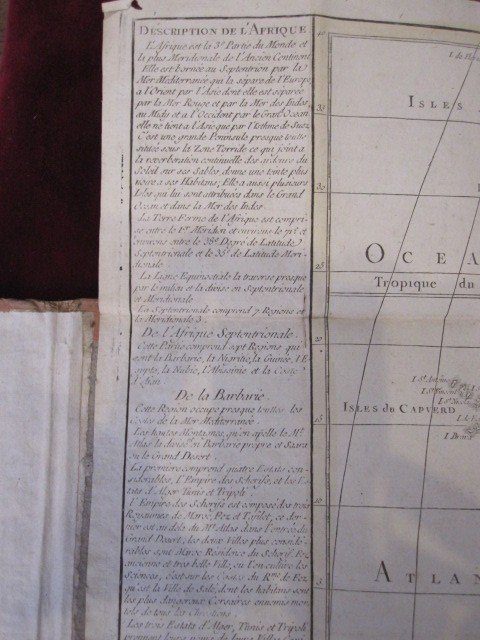 DESCRIPTION DE L'AFRIQUE
L'Afrique est la 3e Partie du Monde et
la plus Meridionale de l'Ancien Continent
Elle est bornée au Septentrion par la
Mer Mediterranée qui la sépare de l'Europe
a l'Orient par l'Asie dont elle est séparée
par la Mer Rouge et par la Mer des Indes
au Midy et a l'Occident par le Grand Ocean
elle ne tient a l'Asie que par l'Isthme de Suez
C'est une grande Peninsule presque toute
située sous la Zone Torride ce qui joint a
la reverberation continuelle des ardeurs du
Soleil sur ses Sables, donne une teinte plus
noire a ses Habitans; Elle a aussi plusieurs
Isles qui lui sont attribuées dans le Grand
Ocean et dans la Mer des Indes
La Terre Ferme de l'Afrique est compri-
se entre le 1er Meridien et environs le
environs entre le 38e Degré de Latitude
Septentrionale et le 35e de Latitude Meri-
dionale
La Ligne Equinoctiale la traverse presque
par le milieu et la divise en Septentrionale
et Meridionale
La Septentrionale comprend 7 Regions et
la Meridionale 3.
De l'Afrique Septentrionale.
Cette Partie comprend sept Regions qui
sont la Barbarie, la Nigritie, la Guinée, l'E
gypte, la Nubie, l'Abissinie et la Coste
d'Ajan
De la Barbarie.
Cette Region occupe presque toutes les
Costes de la Mer Mediterranée
Les hautes Montagnes, qu'on apelle le Mt.
Atlas la divise en Barbarie propre et Saara
ou le Grand Desert.
La premiere comprend quatre Estats con-
siderables, l'Empire des Scherifs, et les E
stats d'Alger Tunis et Tripoli
L'Empire des Scherifs est composé des trois
Royaumes de Maroc, Fez, et Tafilet, ce der-
nier est au delà du Mt. Atlas dans l'entrée du
Grand Desert, les deux Villes plus conside-
rables sont Maroc Residence du Scherif, Fez
ancienne et tres belle Ville, ou l'on cultive les
Sciences, c'est sur les Costes du Rme. de Fez
qu'est la Ville de Salé, dont les habitans sont
les plus dangereux Corsaires ennemis mor-
tels de tous les Chretiens.
Les trois Estats d'Alger, Tunis et Tripoli
prennent leurs noms de leurs Villes
40
35
30
25
20
15
10
5
ISLES
OCEA
Tropique du
I. St. Antoine
I. St. Vincent
I. St. Nicolas
ISLES du CAPVERD
I. Brava
ATLAN